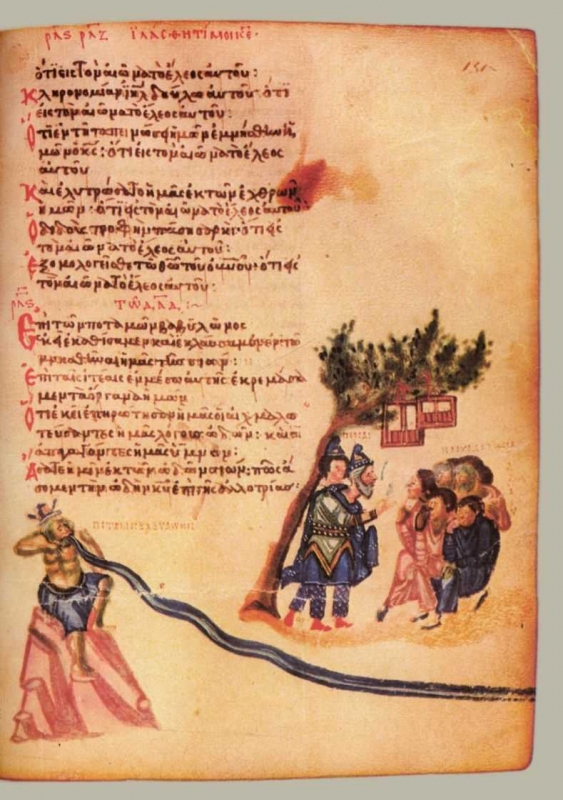 ρλϛ ρλζ ἱλάσθητί μοι κε·
ὅτι εἰς τὸν αἰῶνα τὸ ἔλεος αὐτοῦ:
Κληρονομίαν ιηλ δούλω αὐτοῦ· ὅτι
εἰς τὸν αἰῶνα τὸ ἔλεος αὐτοῦ:
Ὅτι ἐν τῇ ταπεινώσει ἡμῶν ἐμνήσθη ἡ
μῶν ὁ κς: ὅτι εἰς τὸν αἰῶνα τὸ ἔλεος
αὐτοῦ
Καὶ ἐλυτρώσατο ἡμᾶς ἐκ τῶν ἐχθρῶν
ἡμῶν· ὅτι εἰς τὸν αἰῶνα τὸ ἔλεος αὐτοῦ:
Ὁ διδοὺς τροφὴν πάση σαρκί· ὅτι εἰς
τὸν αἰῶνα τὸ ἔλεος αὐτοῦ:
Ἐξομολογεῖσθε τῶ θῶ τοῦ οὐνοῦ· ὅτι εἰς
τὸν αἰῶνα τὸ ἔλεος αὐτοῦ:
ρλϛ τῶ δαδ
Ἐπὶ τῶν ποταμῶν βαβυλῶνος
ἐκεῖ ἐκαθίσαμεν καὶ ἐκλαύσαμεν ἐν τῶ
μνησθῆναι ἡμᾶς τῆς σιών:
Ἐπὶ ταῖς ἰτέαις ἐν μέσω αὐτῆς ἐκρεμάσα
μεν τὰ ὄργανα ἡμῶν
Ὅτι ἐκεῖ ἐπηρώτησαν ἡμᾶς οἱ αἰχμαλω
τεύσαντες ἡμᾶς λόγους ὠδῶν: καὶ οἱ
ἀπαγαγόντες ἡμᾶς ὕμνον:
Ἄσατε ἡμῖν ἐκ τῶν ὠδῶν σιών: πῶς ἄ
σωμεν τὴν ὠδὴν κυ ἐπὶ γῆς ἀλλοτρίας: